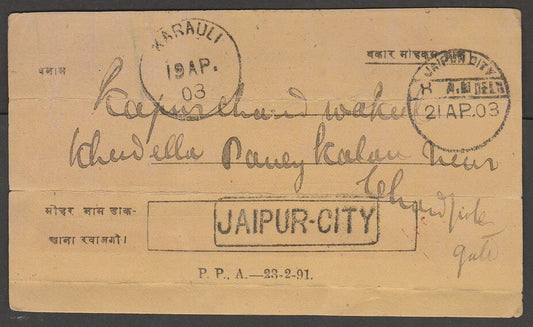 KARAULI
19 AP.
03
बनाम
JAIPUR CITY
21 AP.03
Kapurchand
Khewella Paney Kalan near
Chandpole
gate
मोहर नाम डाक-
खाना रवानगी।
JAIPUR-CITY
P. P., A.—23-2-91.